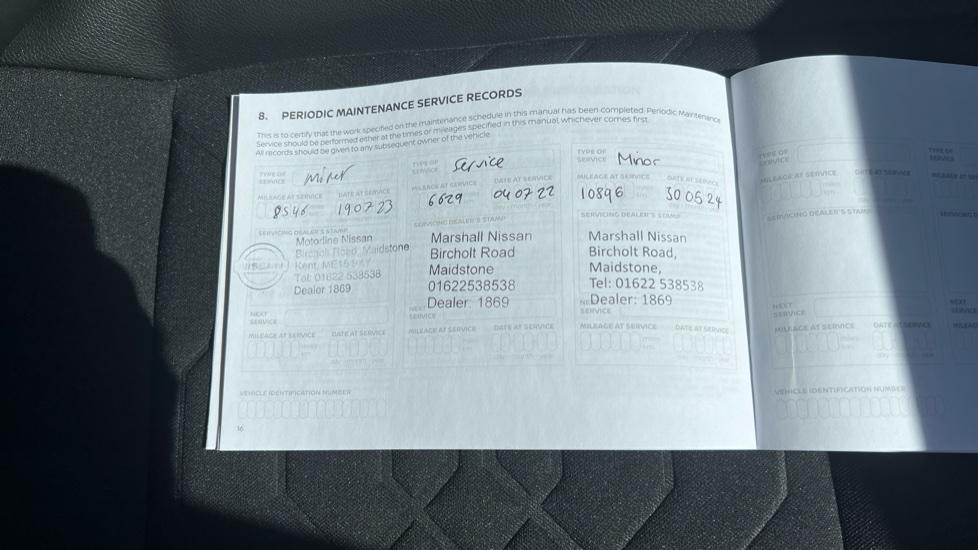 8. PERIODIC MAINTENANCE SERVICE RECORDS
This is to certify that the work specified on the maintenance schedule in this manual has been completed. Periodic Maintenance
Service should be performed either at the times or mileages specified in this manual, whichever comes first.
All records should be given to any subsequent owner of the vehicle.
TYPE OF
SERVICE
Minor
MILEAGE AT SERVICE DATE AT SERVICE
8546 190723
SERVICING DEALER'S STAMP
NISSAN
Motorline Nissan
Bircholt Road, Maidstone
Kent,
Tel: 01622 538538
Dealer 1869
NEXT
SERVICE
MILEAGE AT SERVICE DATE AT SERVICE
miles
km
day month year
TYPE OF
SERVICE
Service
MILEAGE AT SERVICE DATE AT SERVICE
6629 040722
SERVICING DEALER'S STAMP
Marshall Nissan
Bircholt Road
Maidstone
01622538538
Dealer: 1869
NEXT
SERVICE
MILEAGE AT SERVICE DATE AT SERVICE
TYPE OF
SERVICE
Minor
MILEAGE AT SERVICE DATE AT SERVICE
10896 miles 300524
SERVICING DEALER'S STAMP
Marshall Nissan
Bircholt Road,
Maidstone,
Tel: 01622 538538
Dealer: 1869
SERVICE
MILEAGE AT SERVICE DATE AT SERVICE
miles
km
VEHICLE IDENTIFICATION NUMBER
16
TYPE OF
SERVICE
MILEAGE AT SERVICE DATE AT SERVICE
SERVICING DEALER'S STAMP
NEXT
SERVICE
MILEAGE AT SERVICE DATE AT SERVICE
miles
km
day month year
VEHICLE IDENTIFICATION NUMBER
TYPE OF
SERVICE
NEXT
SERVICE